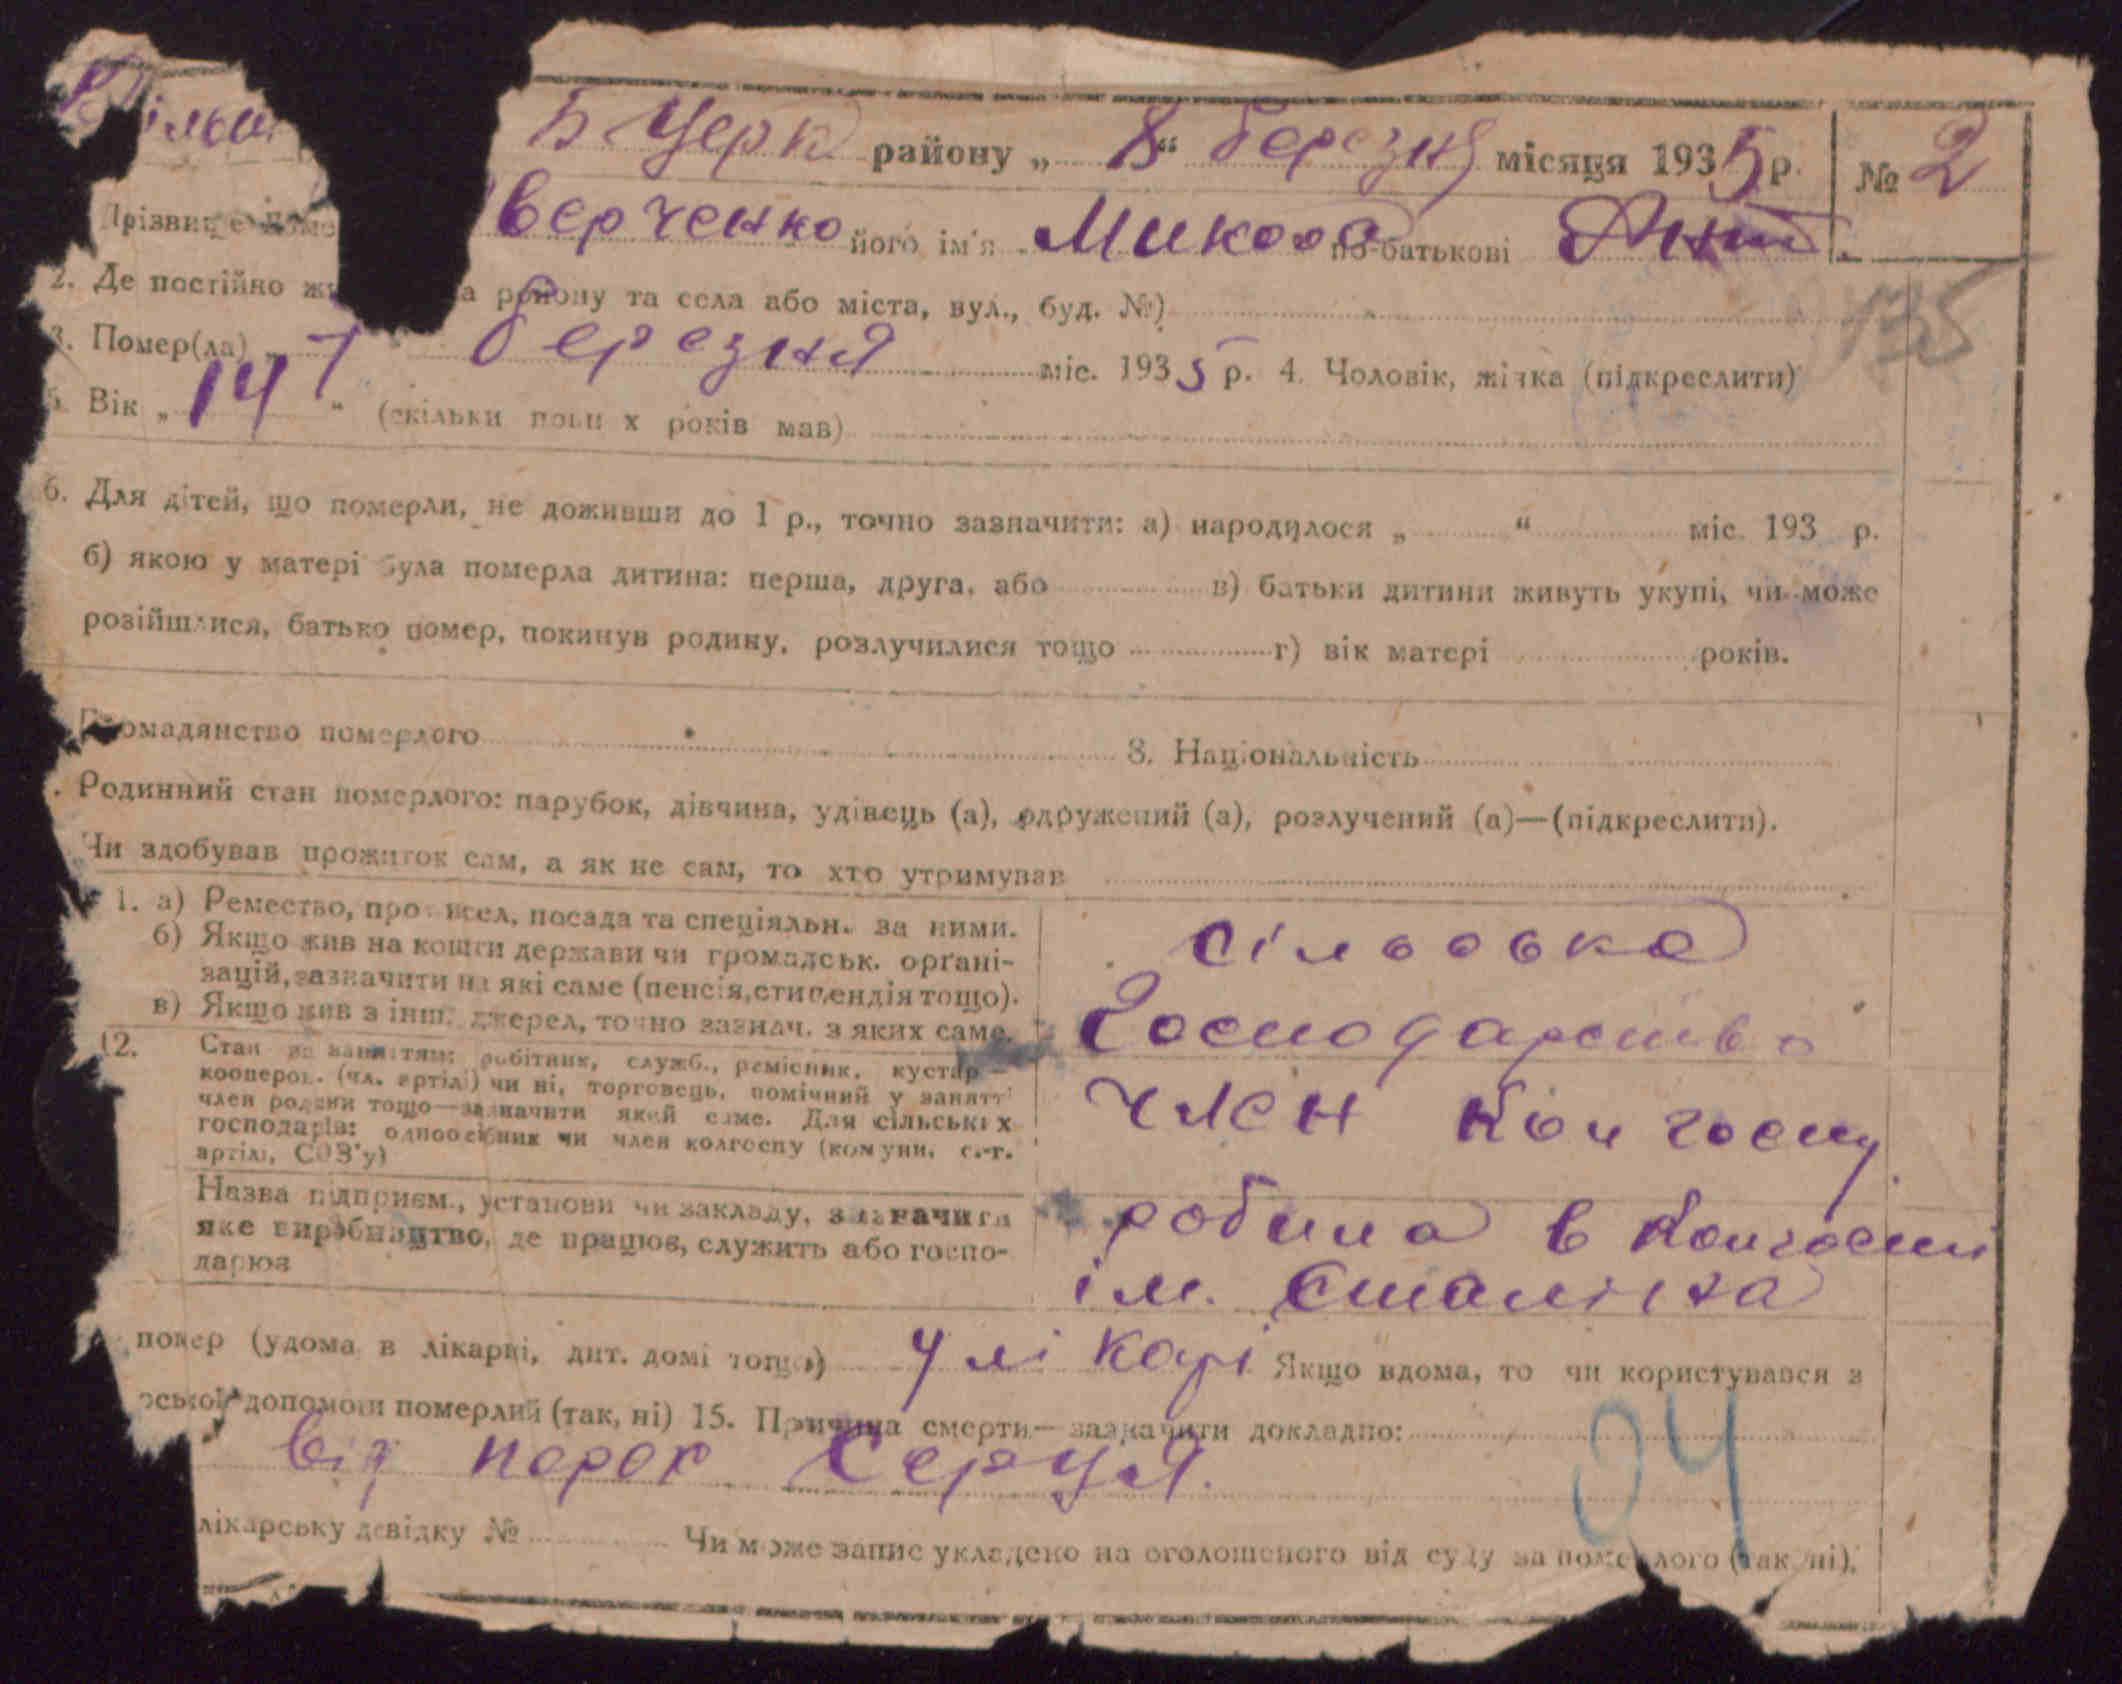 Б Церк району „ 8 “ березня місяця 1935 р. № 2
Прізвище верченко його ім'я Микола по-батькові Ант.
2. Де постійно району та села або міста, вул., буд. №)
135
3. Помер(ла) „ 7 березня міс. 1935 р. 4. Чоловік, жінка (підкреслити)
5. Вік „ 14 “ (скільки х років мав)
6. Для дітей, що померли, не доживши до 1 р., точно зазначити: а) народилося „ “ міс. 193 р.
б) якою у матері була померла дитина: перша, друга, або в) батьки дитини живуть укупі, чи може
розійшлися, батько помер, покинув родину, розлучилися тощо г) вік матері років.
Громадянство померлого 8. Національність
. Родинний стан померлого: парубок, дівчина, удівець (а), одружений (а), розлучений (а)—(підкреслити).
Чи здобував прожиток сам, а як не сам, то хто утримував
1. а) Ремество, промисел, посада та спеціяльн. за ними.
б) Якщо жив на кошти держави чи громадськ. орґані-
зацій, зазначити на які саме (пенсія, стипендія тощо).
в) Якщо жив з інш. джерел, точно зазнач. з яких саме.
сільська
Господарство
12. Стан за заняттям: робітник, служб., ремісник, кустар
кооперов. (чл. артілі) чи ні, торговець, помічний у занятті
член родини тощо—зазначити який саме. Для сільських
господарів: одноосібник чи член колгоспу (комуни, с.-г.
артілі, СОЗ'у)
член Колгоспу
Назва підприєм., установи чи закладу, зазначити
яке виробництво, де працює, служить або госпо-
дарює
робила в Колгоспі
ім. Сталіна
помер (удома, в лікарні, дит. домі тощо) у лі карі Якщо вдома, то чи користувався з
рської допомоги померлий (так, ні) 15. Причина смерти—зазначити докладно:
від порок серця.
04
лікарську довідку № Чи може запис укладено на оголошеного від суду за померлого (так, ні).